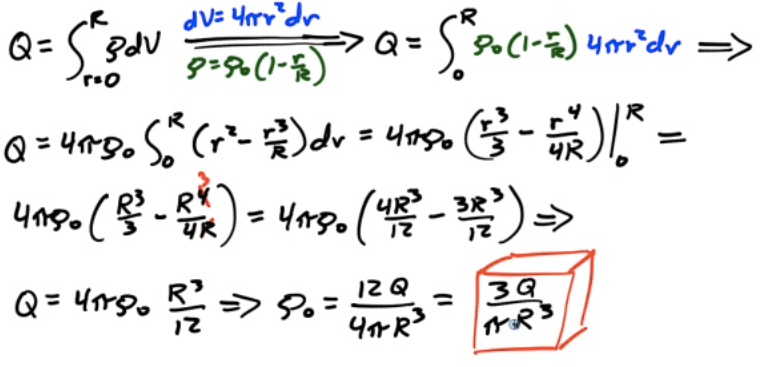 Q = ∫_{r=0}^{R} ρdV  dV = 4πr²dr / ρ = ρ₀(1 - r/R) ⟹ Q = ∫_0^R ρ₀(1 - r/R) 4πr²dr ⟹
Q = 4πρ₀ ∫_0^R (r² - r³/R) dr = 4πρ₀ (r³/3 - r⁴/4R)|_0^R =
4πρ₀ (R³/3 - R⁴ 3/4R) = 4πρ₀ (4R³/12 - 3R³/12) ⟹
Q = 4πρ₀ R³/12 ⟹ ρ₀ = 12Q/4πR³ = 3Q/πR³